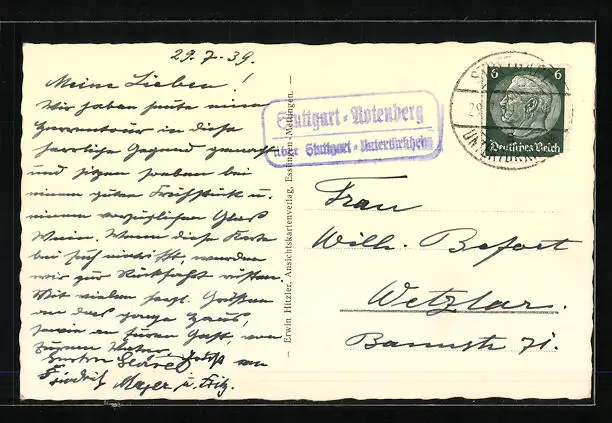 29.7.39.
Meine Lieben!
Wir haben heute eine
Herrentour in diese
herrliche Gegend gemacht
und sitzen soeben bei
einem guten Frühstück u.
einem vorzüglichen Glas
Wein. Wenn diese Karte
bei Euch eintrifft, werden
wir zur Rückfahrt rüsten.
Mit vielen herzl. Grüßen
an das ganze Haus,
sowie an Euren Gast, von
Eurem Vater,
Friedrich Mayer u. Fritz.
Erwin Hitzler, Ansichtskartenverlag, Esslingen-Mettingen.
Stuttgart-Rotenberg
über Stuttgart-Untertürkheim
6 6
Deutsches Reich
Frau
Wilh. Befort
Wetzlar.
Bannstr. 71.